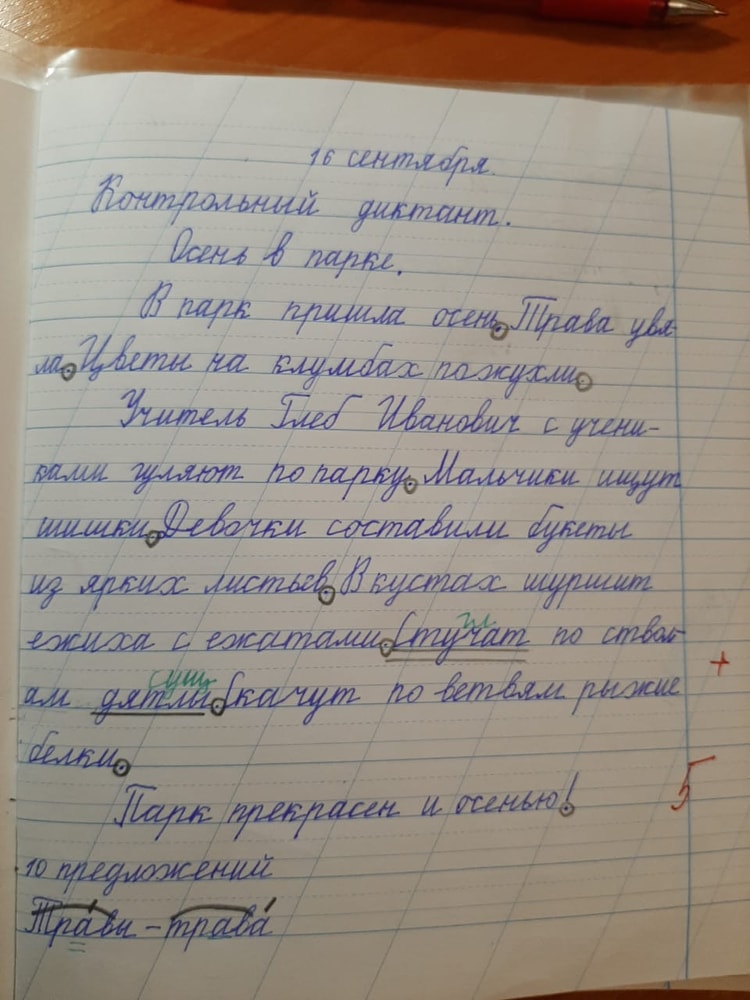 16 сентября.
Контрольный диктант.
Осень в парке.
В парк пришла осень. Трава увя-
ла. Цветы на клумбах пожухли.
Учитель Глеб Иванович с учени-
ками гуляют по парку. Мальчики ищут
шишки. Девочки составили букеты
из ярких листьев. В кустах шуршит
гл.
ежиха с ежатами. Стучат по ствол-
сущ.
ам дятлы. Скачут по ветвям рыжие
+
белки.
Парк прекрасен и осенью!
5
10 предложений
Тра́вы – трава́